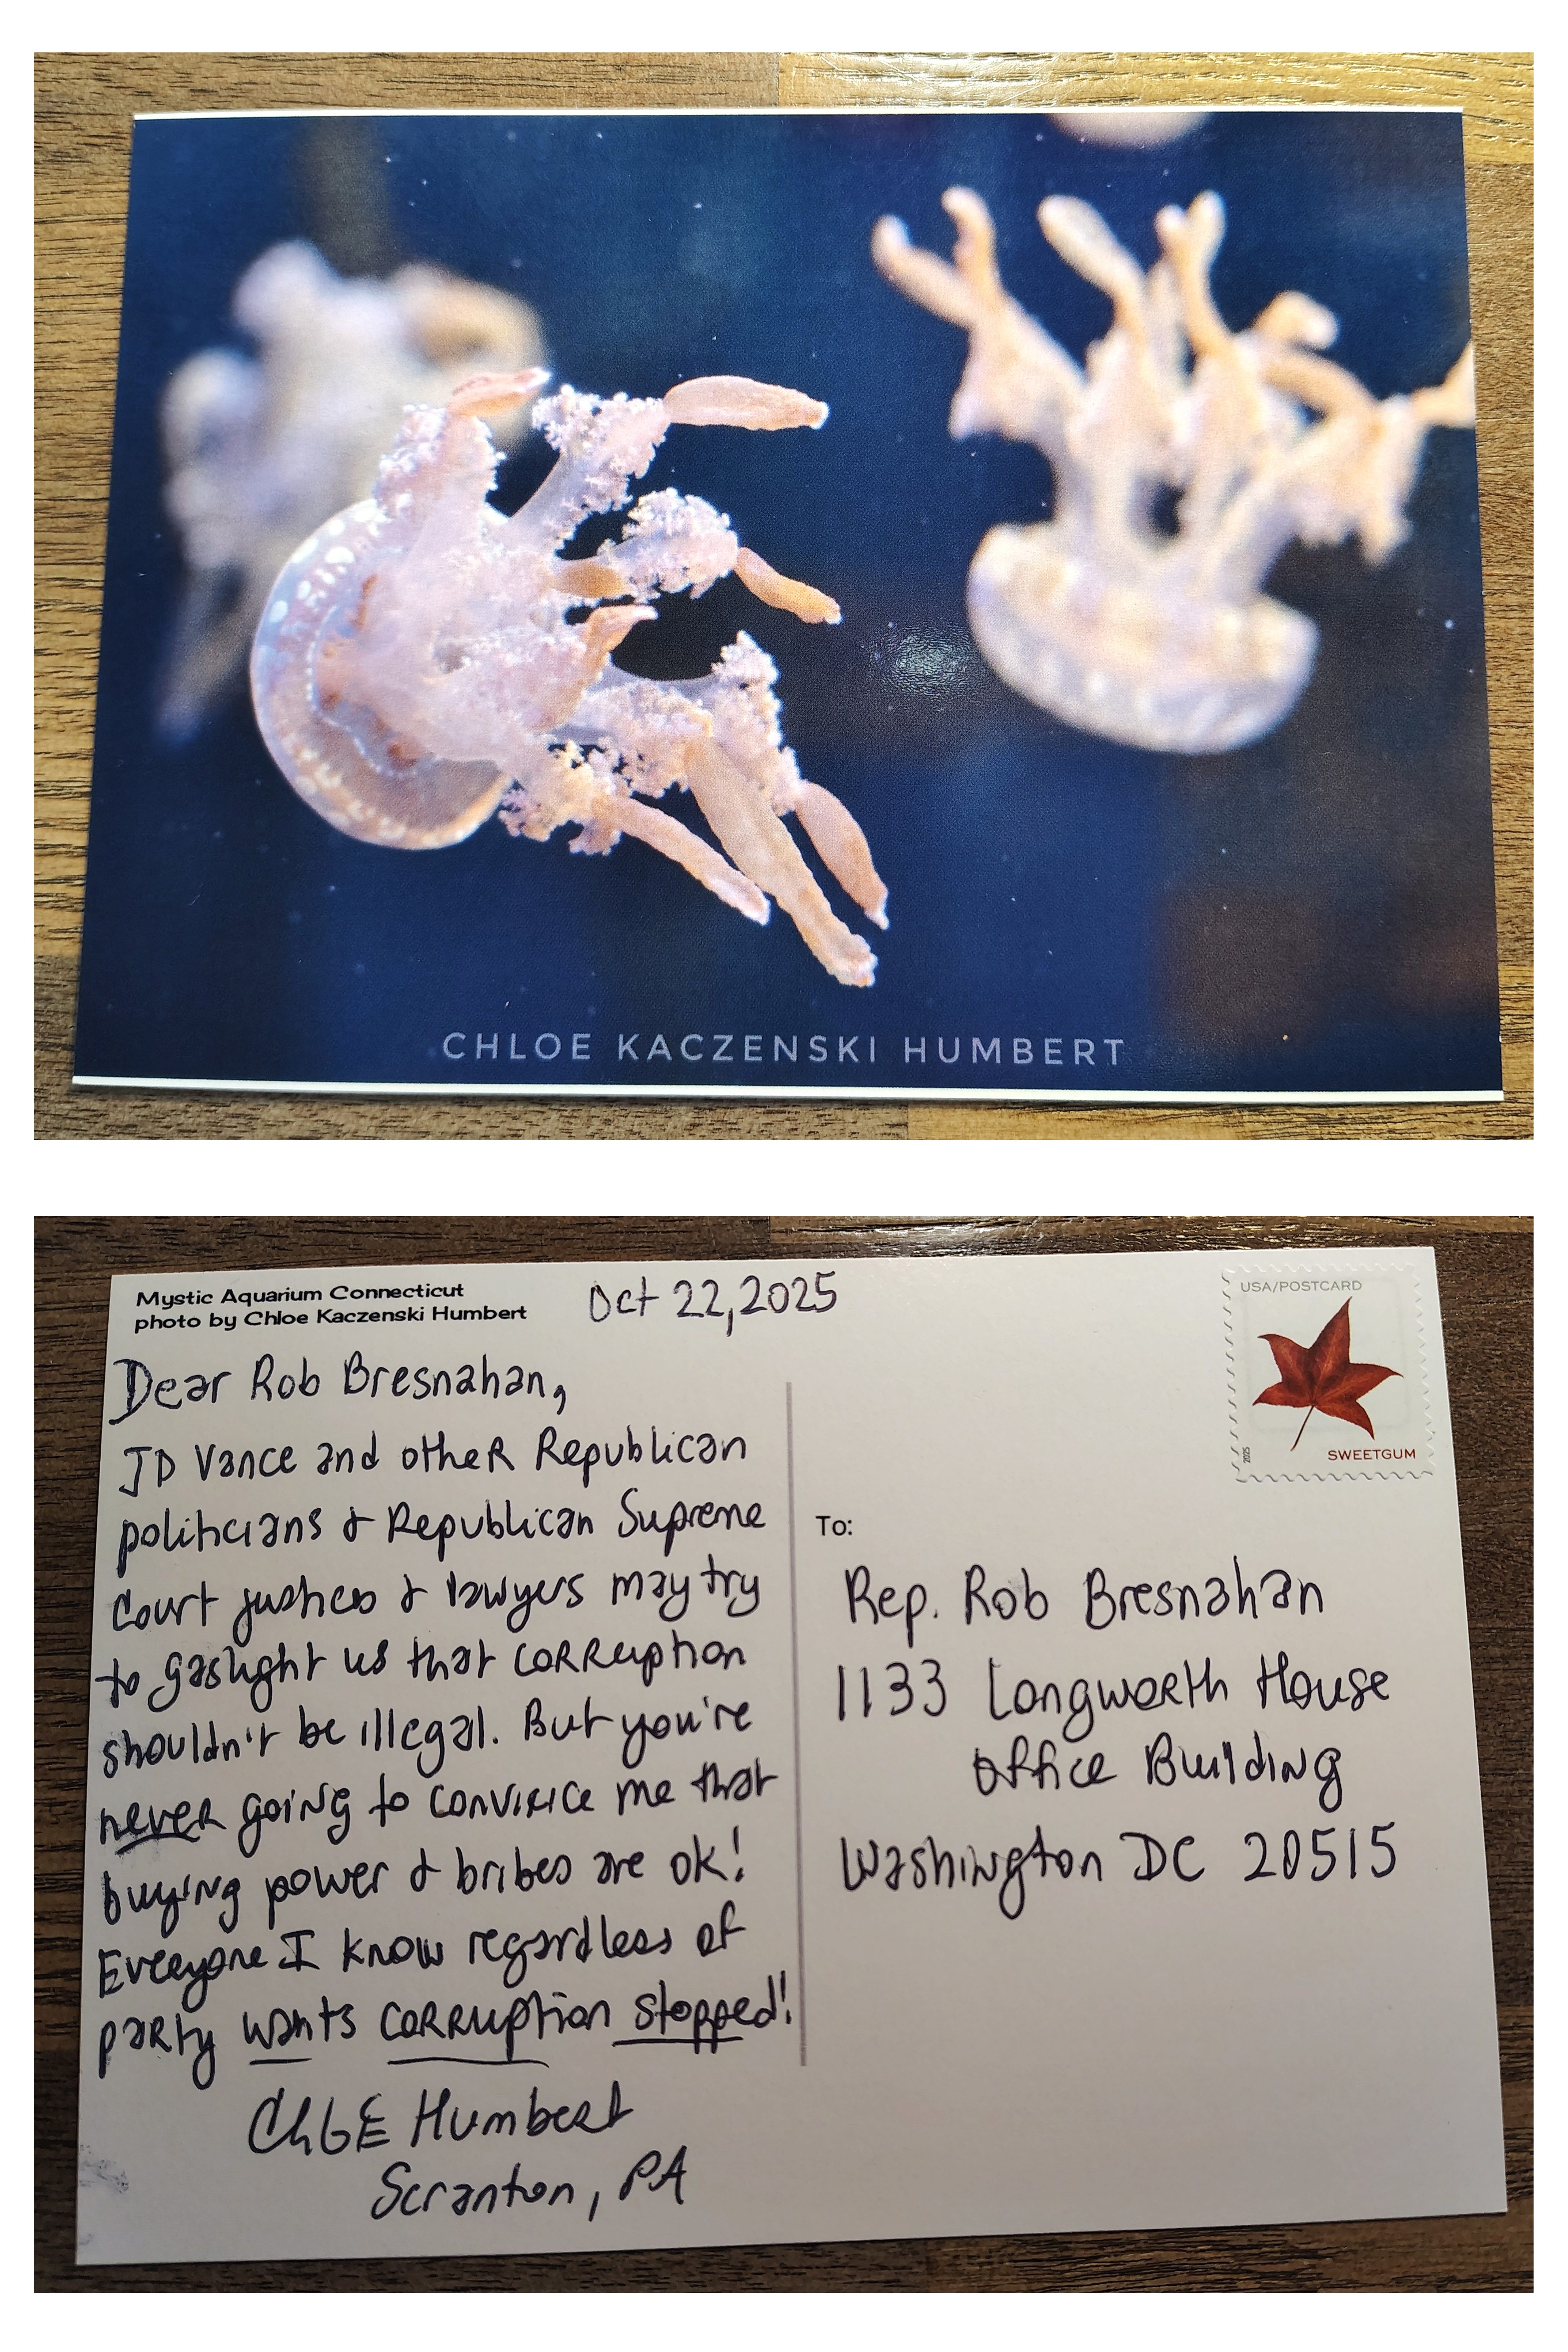 CHLOE KACZENSKI HUMBERT
Mystic Aquarium Connecticut
photo by Chloe Kaczenski Humbert
Oct 22, 2025
Dear Rob Bresnahan,
JD Vance and other Republican
politicians & Republican Supreme
Court justices & lawyers may try
to gaslight us that corruption
shouldn't be illegal. But you're
never going to convince me that
buying power & bribes are ok!
Everyone I know regardless of
party wants corruption stopped!
Chloe Humbert
Scranton, PA
USA/POSTCARD
2025
SWEETGUM
To:
Rep. Rob Bresnahan
1133 Longworth House
Office Building
Washington DC 20515